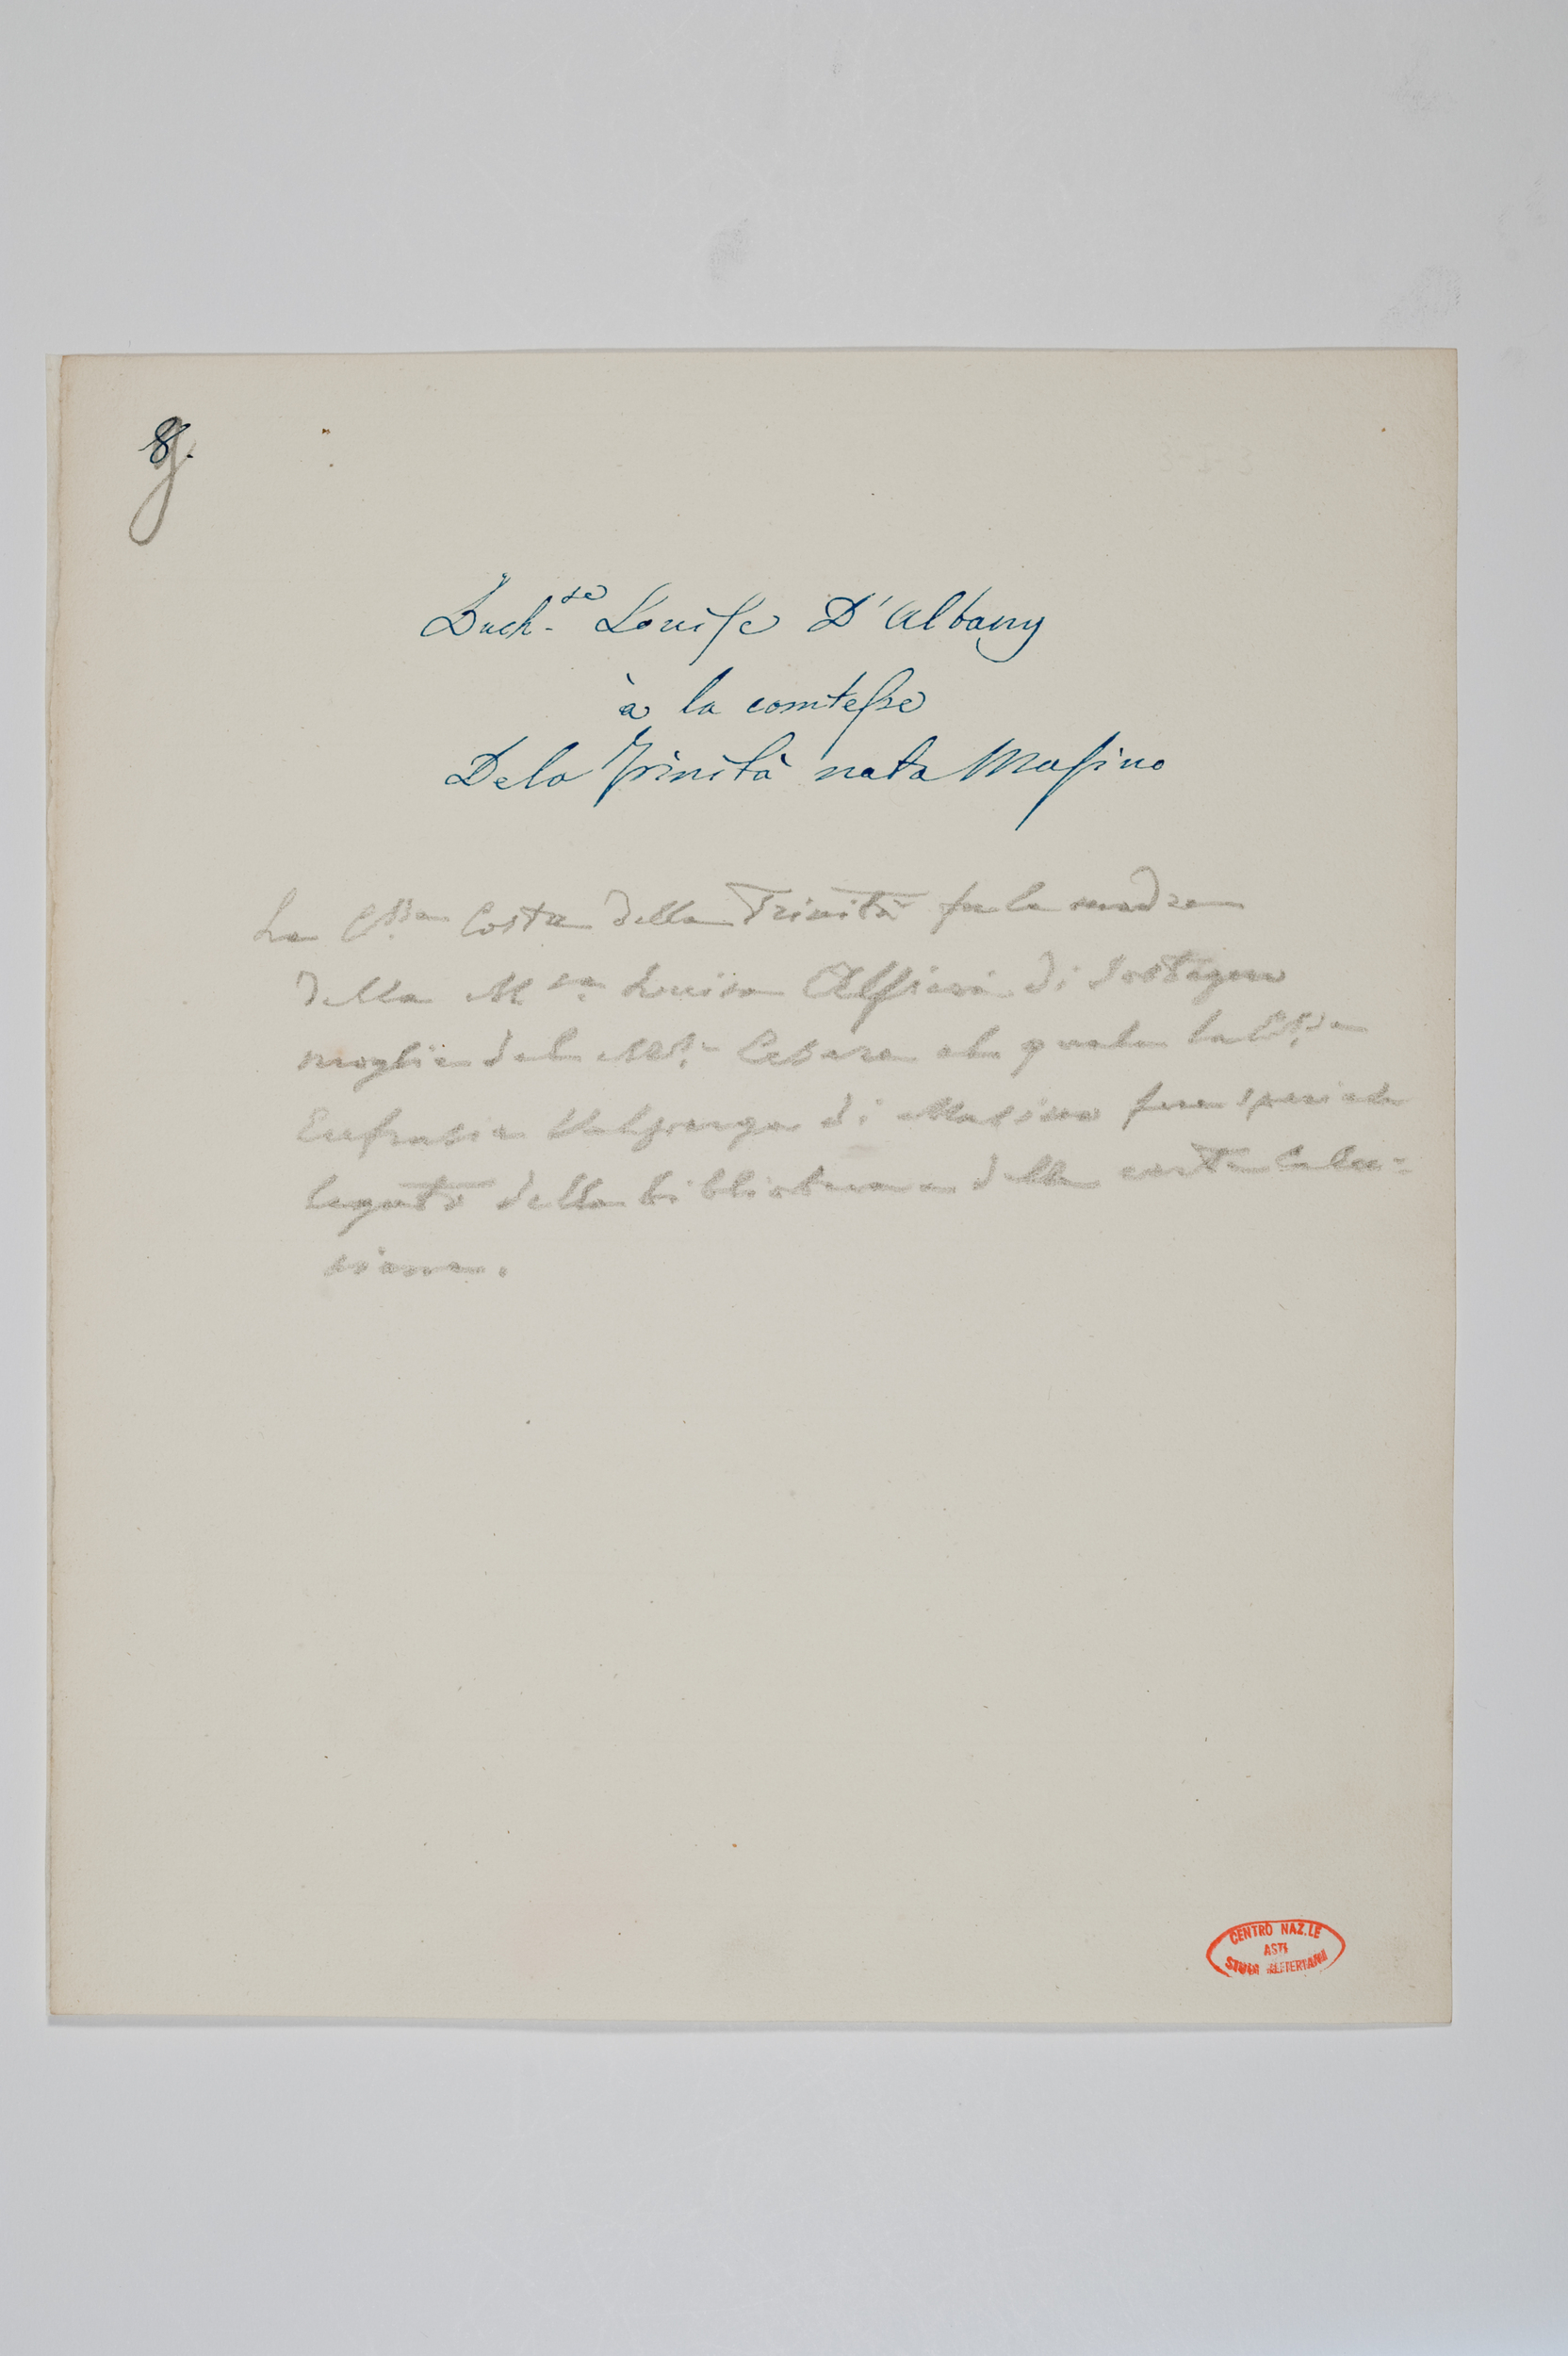 8.
g
Duch.se Louise D'Albany
à la comtesse
Dela Trinità nata Masino
La C.ssa Costa della Trinità fu la madre
della M.sa Luisa Alfieri di Sostegno
moglie del M.se Cesare al quale la C.ssa
Eufrasia Valperga di Masino fece speciale
legato della biblioteca e delle carte Calu-
siane.
CENTRO NAZ.LE
ASTI
STUDI ALFIERIANI